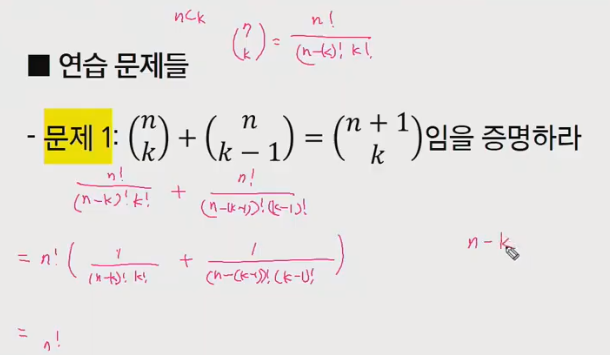 nCk (n k) = n! / (n-k)! k!
■ 연습 문제들
- 문제 1: (n k) + (n k − 1) = (n + 1 k)임을 증명하라
n! / (n-k)! k! + n! / (n-(k-1))! (k-1)!
= n! ( 1 / (n-k)! k! + 1 / (n-(k-1))! (k-1)! )
n - k
= n!